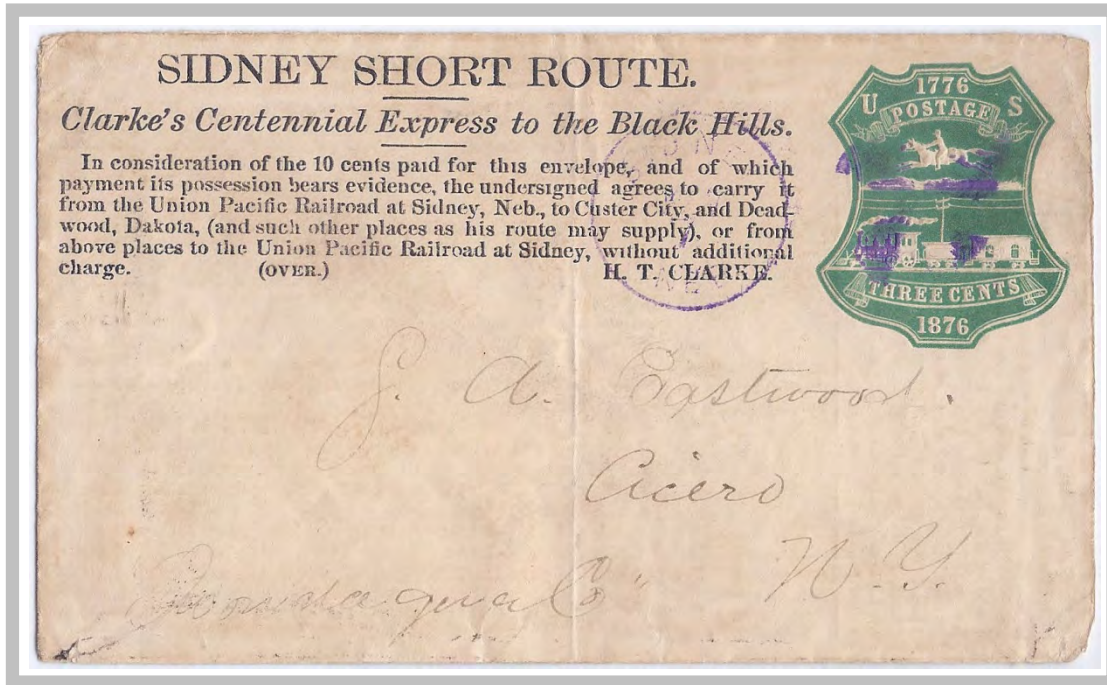 SIDNEY SHORT ROUTE.
Clarke's Centennial Express to the Black Hills.
In consideration of the 10 cents paid for this envelope, and of which
payment its possession bears evidence, the undersigned agrees to carry it
from the Union Pacific Railroad at Sidney, Neb., to Custer City, and Dead-
wood, Dakota, (and such other places as his route may supply), or from
above places to the Union Pacific Railroad at Sidney, without additional
charge. (OVER.) H. T. CLARKE.
1776
U POSTAGE S
THREE CENTS
1876
A. Eastwood.
Cicero
N. Y.